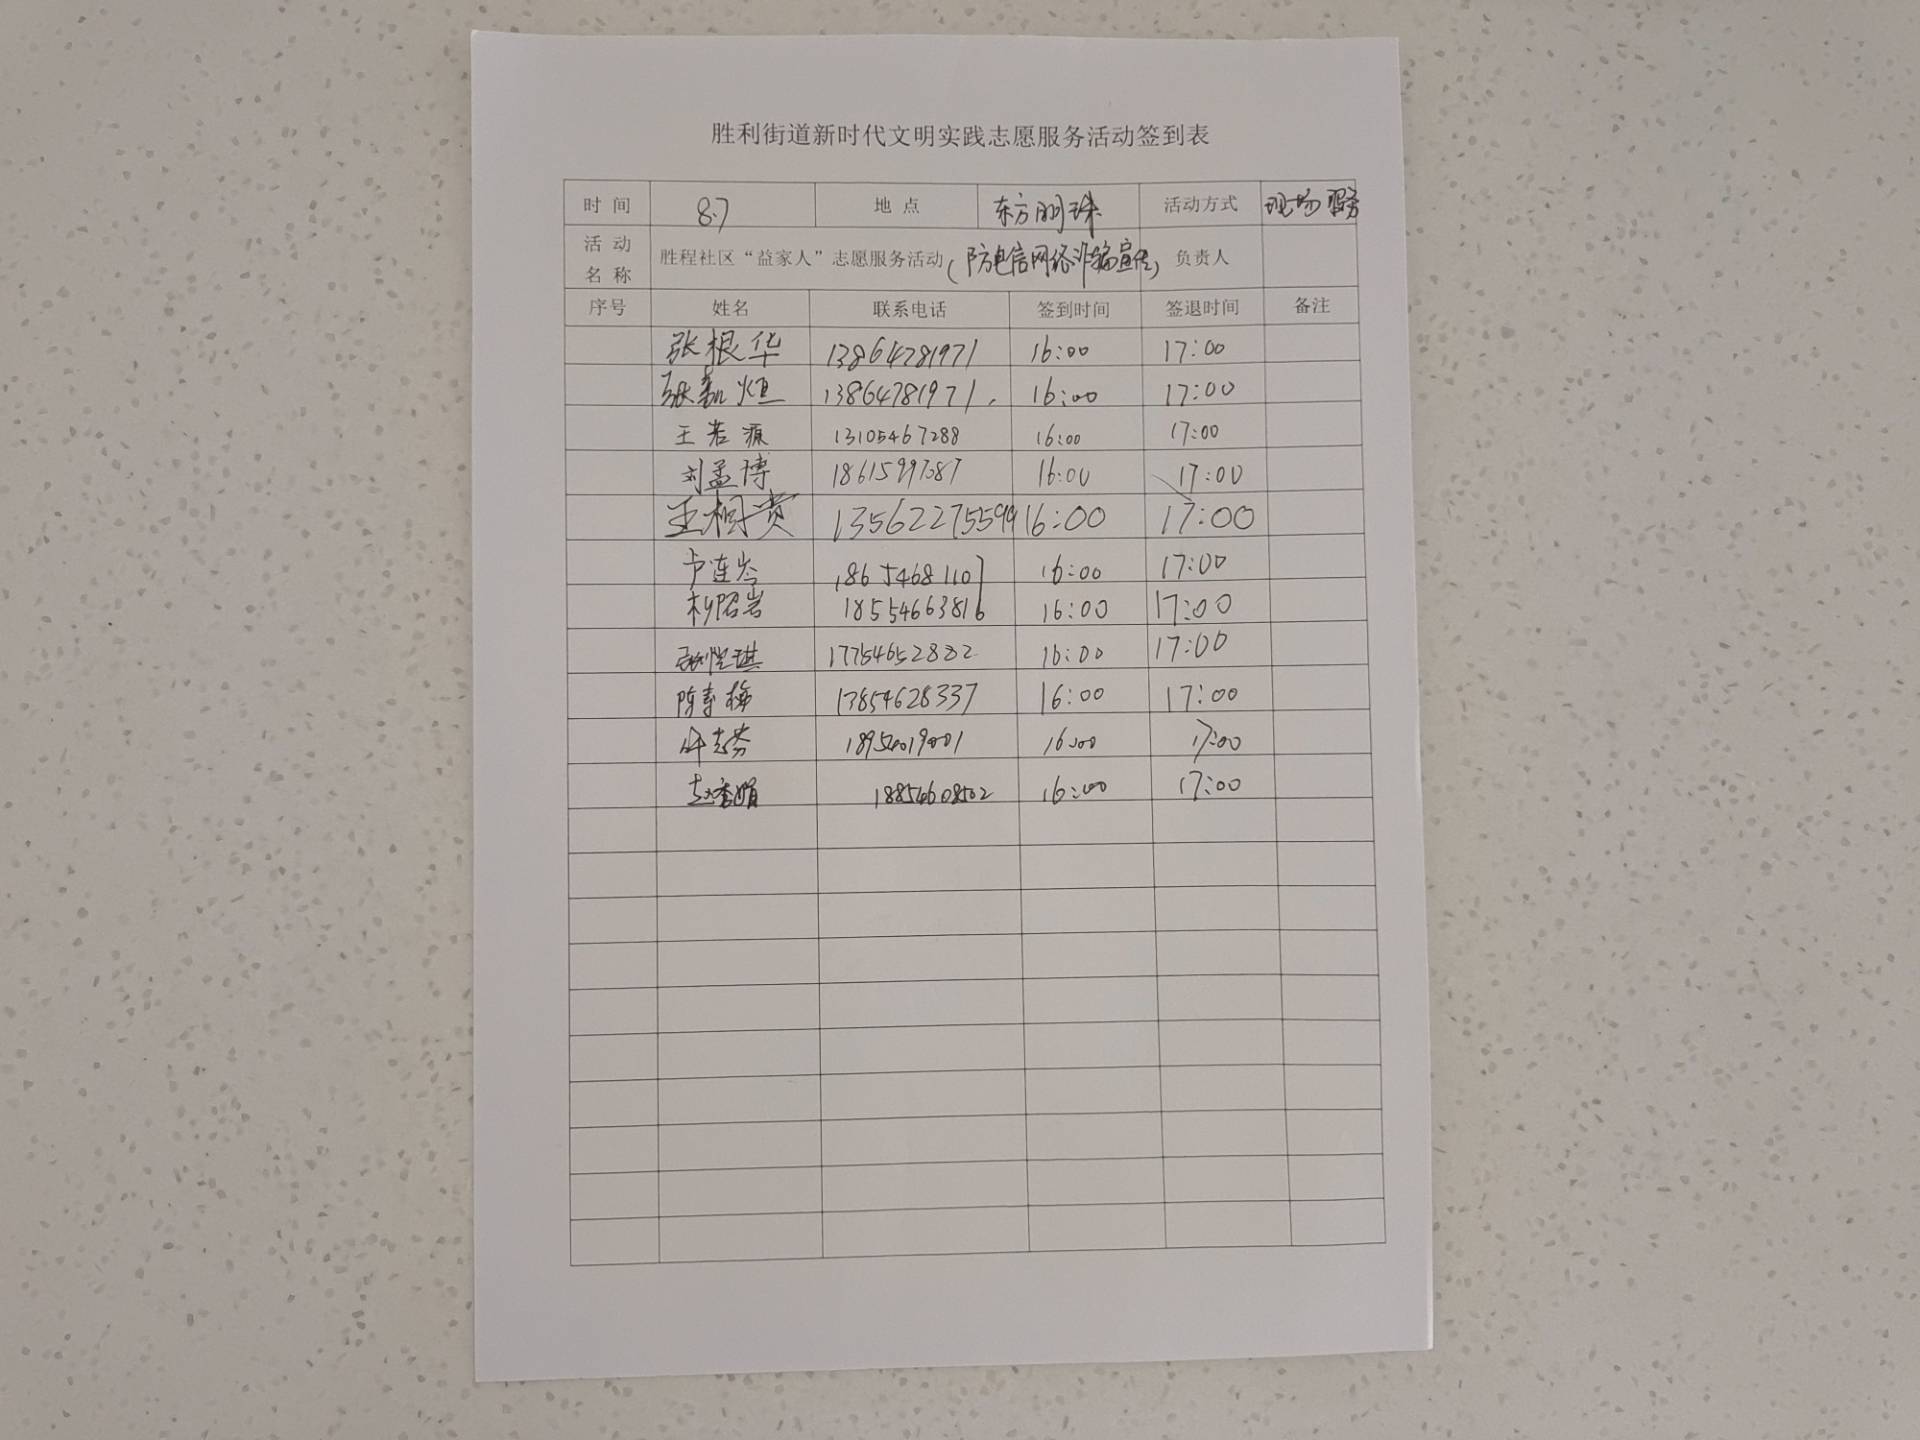 胜利街道新时代文明实践志愿服务活动签到表
时间 8.7 地点 东方明珠 活动方式 现场服务
活动名称 胜程社区“益家人”志愿服务活动(防电信网络诈骗宣传) 负责人
序号 姓名 联系电话 签到时间 签退时间 备注
张根华 13864781971 16:00 17:00
张 恒 13864781971. 16:00 17:00
王若源 13105467288 16:00 17:00
刘孟博 16:00 17:00
王树贵 13562275599 16:00 17:00
卢连岑 18654681107 16:00 17:00
柳岩 18554663816 16:00 17:00
张悦琪 17754652882 16:00 17:00
陈春梅 13854628337 16:00 17:00
16:00 17:00
赵秀娟 18854608502 16:00 17:00